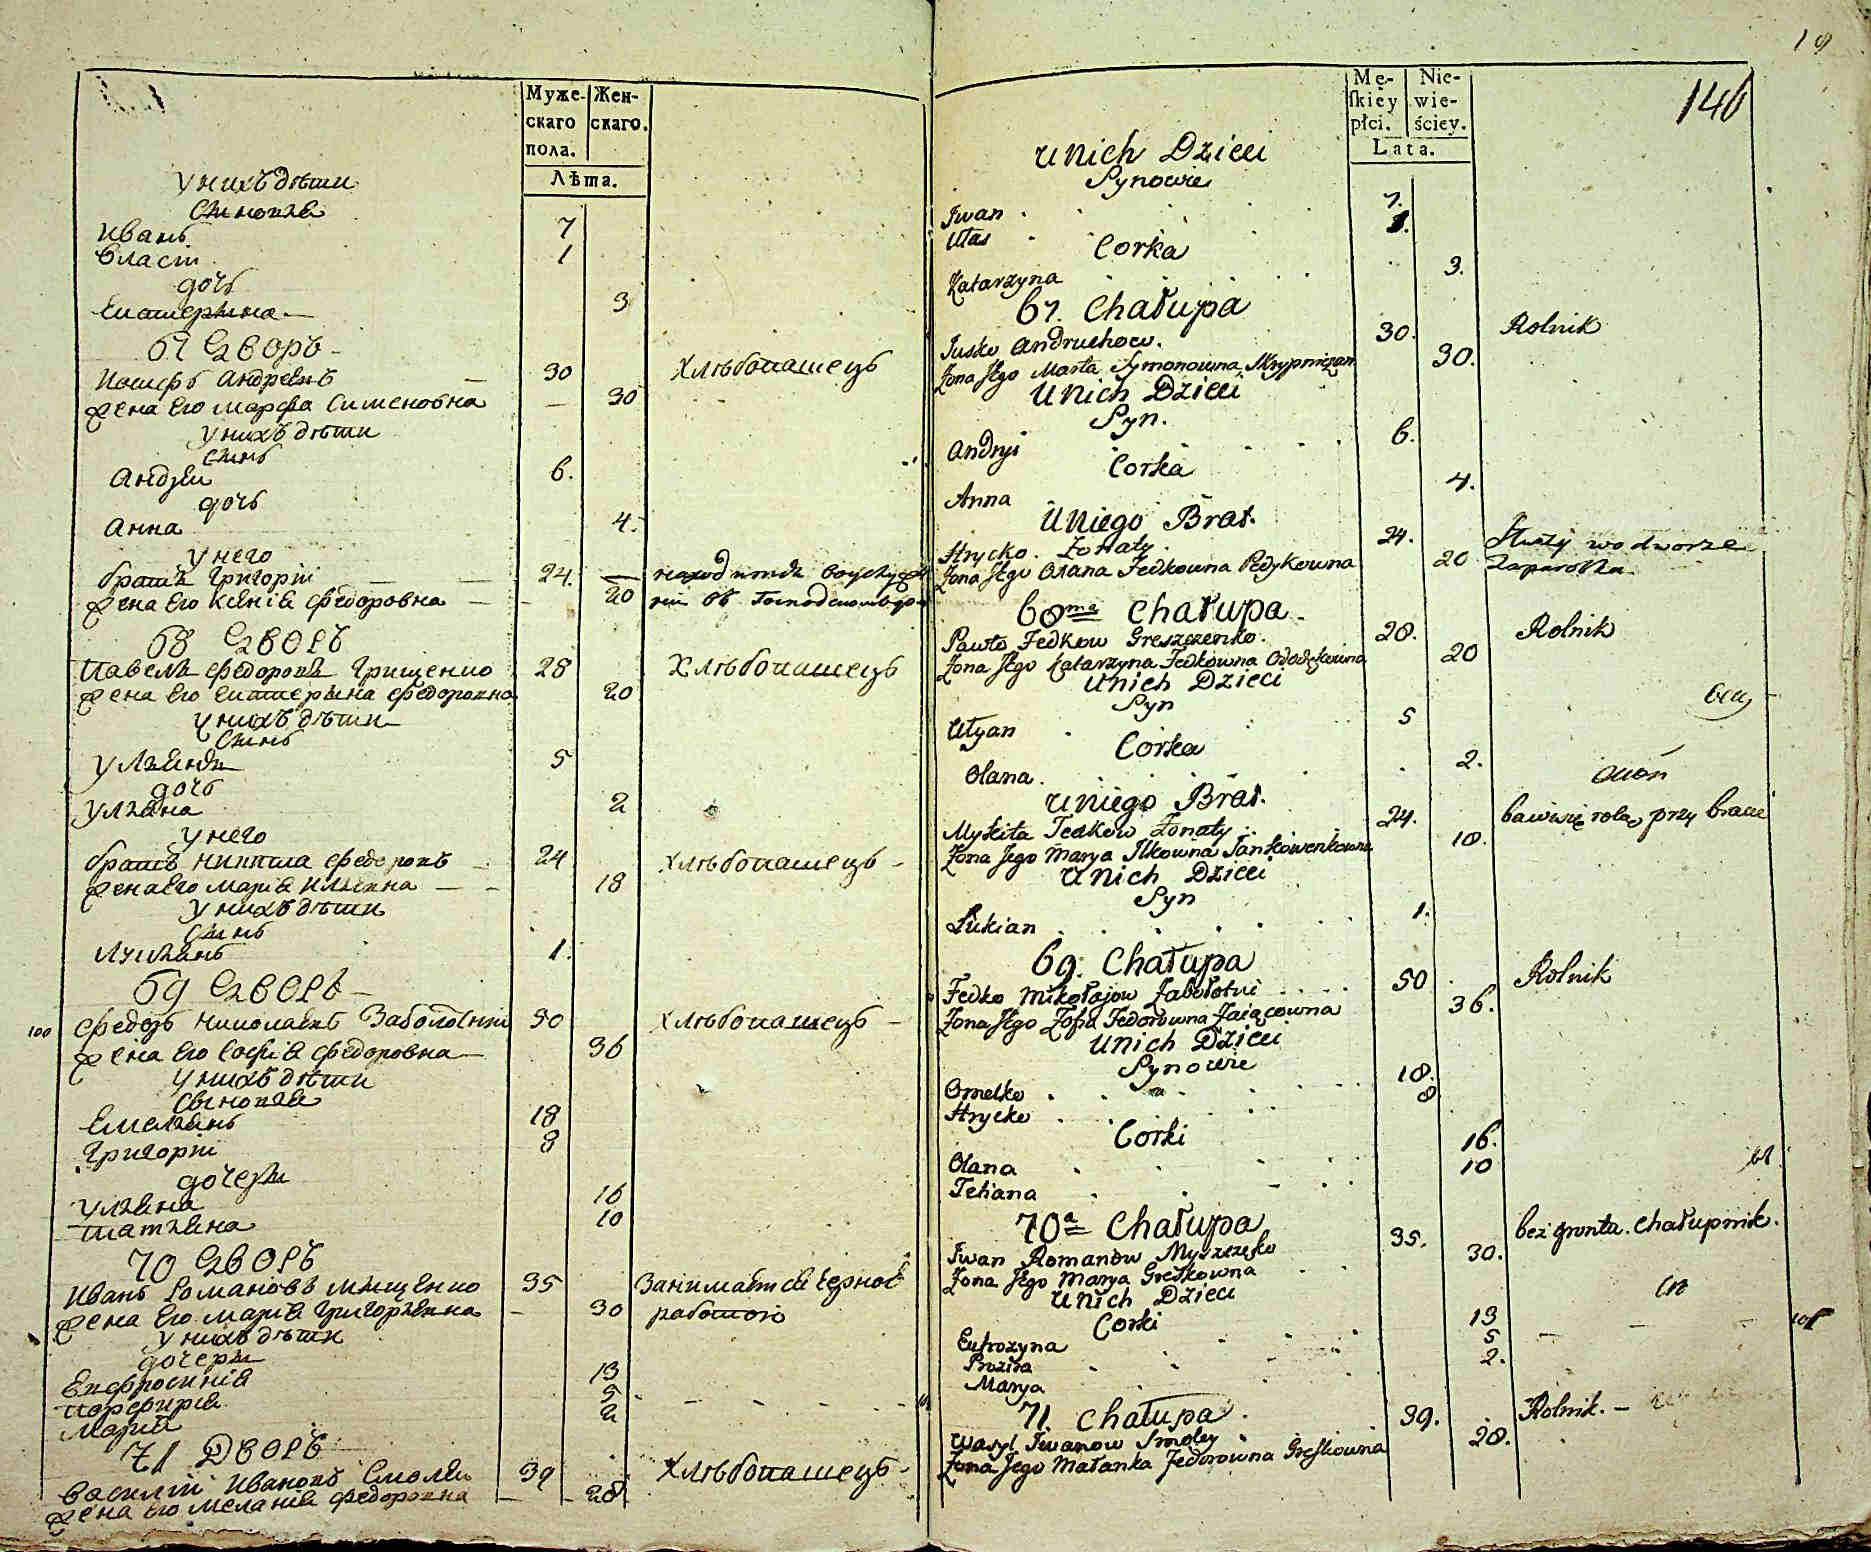 Муже-
скаго
пола.
Жен-
скаго.
Лѣта.
У нихъ дѣти
Сыновья
Иванъ 7
Власій 1
дочь
Екатерина 3
67 Дворъ
Иосифъ Андреевъ 30 Хлѣбопашецъ
Жена его Марфа Сименовна 30
У нихъ дѣти
Сынъ
Андрей 6.
дочь
Анна 4.
У него
братъ Григорій 24.
Жена его Ксенія Федоровна 20
68 Дворъ
Павелъ Федоровъ Грищенко 28 Хлѣбопашецъ
Жена его Екатерина Федоровна 20
У нихъ дѣти
Сынъ
Ульянъ 5
дочь
Ульяна 2
У него
братъ Никита Федоровъ 24 Хлѣбопашецъ
Жена его Марія Ильина 18
У нихъ дѣти
Сынъ
Лукіянъ 1.
69 Дворъ
100 Федоръ Николаевъ Заболотній 50 Хлѣбопашецъ
Жена его Софія Федоровна 36
У нихъ дѣти
Сыновья
Емельянъ 18
Григорій 8
дочери
Ульяна 16
Татьяна 10
70 Дворъ
Иванъ Романовъ Мищенко 35 Занимается черною
Жена его Марія Григорьевна 30 работою
У нихъ дѣти
дочери
Евфросинія 13
Порфирія 5
Марія 2
71 Дворъ
Василій Ивановъ Смолей 39 Хлѣбопашецъ
Жена его Меланія Федоровна 28
19
146
Mę-
skiey
płci.
Nie-
wie-
ściey.
Lata.
U nich Dzieci
Synowie
Iwan 7.
Ułas 1.
Corka
Katarzyna 3.
67. Chałupa
Jusko Andruchow. 30. Rolnik
Zona Jego Marta Symonowna 30.
U nich Dzieci
Syn.
Andryi 6.
Corka
Anna 4.
U niego Brat.
Hrycko. Zonaty. 24. Służy wo dworze
Zona Jego Oxana Fedkowna 20
68ma Chałupa.
Pawło Fedkow Greszczenko. 28. Rolnik
Zona Jego Katarzyna Fedkowna 20
U nich Dzieci
Syn
Ulyan 5
Corka
Olana. 2.
U niego Brat.
Mykita Fedkow Zonaty 24. bawi się rolą przy bracie
Zona Jego Marya Ilkowna 18.
U nich Dzieci
Syn
Łukian 1.
69. Chałupa
Fedko Mikołajow Zabołotni 50 Rolnik
Zona Jego Zofia Fedorowna 36.
U nich Dzieci
Synowie
Omelko 18.
Hrycko 8
Corki
Olana 16.
Tetiana 10
70a Chałupa
Iwan Romanow Myszczenko 35. bez gruntu. Chałupnik.
Zona Jego Marya Greskowna 30.
U nich Dzieci
Corki
Eufrozyna 13
5
Marya 2.
71. Chałupa.
Wasyl Iwanow Smoley 39. Rolnik.
Zona Jego Małanka Fedorowna Greskowna 28.